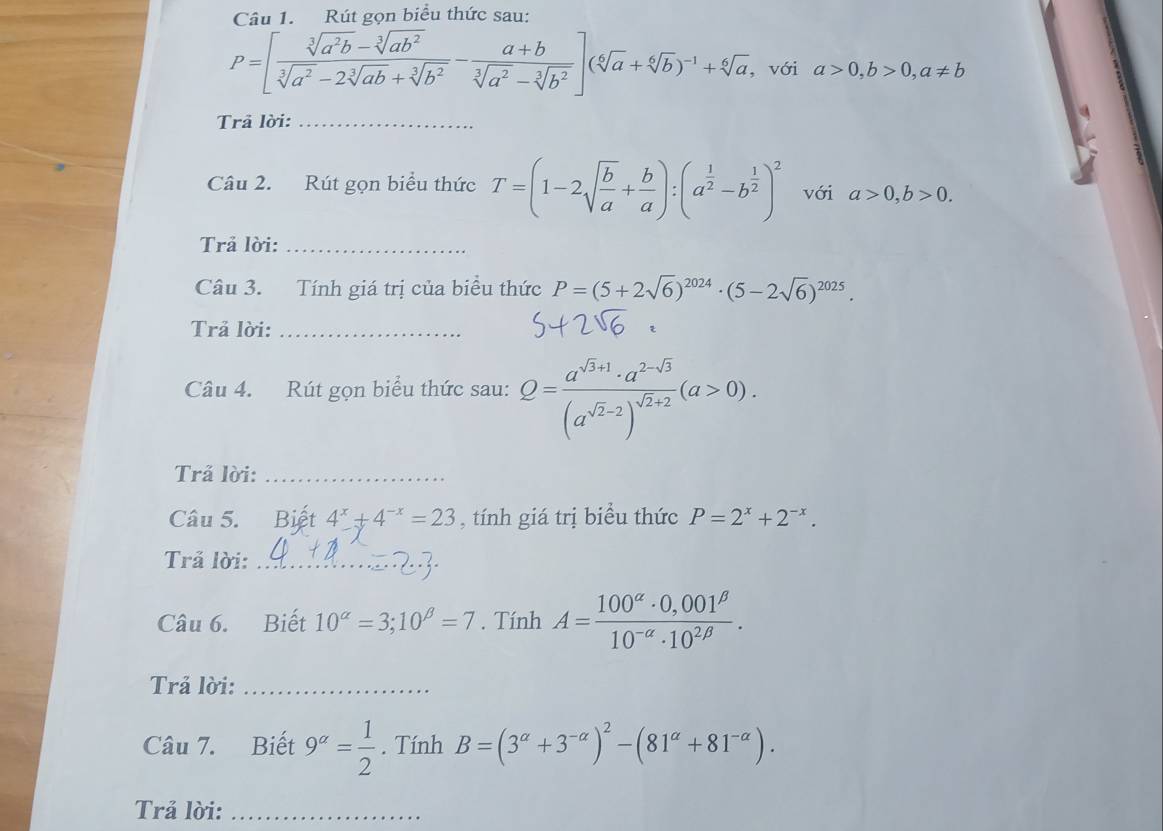 Câu 1. Rút gọn biểu thức sau:
P = [ (∛(a²b) − ∛(ab²)) / (∛(a²) − 2∛(ab) + ∛(b²)) − (a+b) / (∛(a²) − ∛(b²)) ] (⁶√a + ⁶√b)⁻¹ + ⁶√a, với a > 0, b > 0, a ≠ b
Trả lời: ........................
Câu 2. Rút gọn biểu thức T = (1 − 2√(b/a) + b/a) : (a^(1/2) − b^(1/2))² với a > 0, b > 0.
Trả lời: ........................
Câu 3. Tính giá trị của biểu thức P = (5 + 2√6)^2024 · (5 − 2√6)^2025.
Trả lời: ........................ 5+2√6
Câu 4. Rút gọn biểu thức sau: Q = (a^(√3+1) · a^(2−√3)) / (a^(√2−2))^(√2+2) (a > 0).
Trả lời: ........................
Câu 5. Biết 4^x + 4^(−x) = 23, tính giá trị biểu thức P = 2^x + 2^(−x).
Trả lời: ........................ = 23
Câu 6. Biết 10^α = 3; 10^β = 7. Tính A = (100^α · 0,001^β) / (10^(−α) · 10^(2β)).
Trả lời: ........................
Câu 7. Biết 9^α = 1/2. Tính B = (3^α + 3^(−α))² − (81^α + 81^(−α)).
Trả lời: ........................